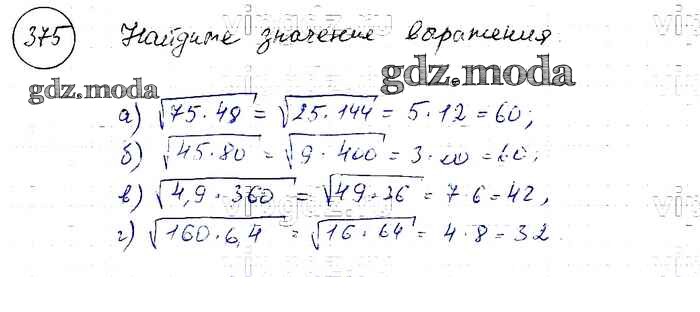 375 Найдите значение выражения
gdz.moda
gdz.moda
а) √75·48 = √25·144 = 5·12 = 60;
б) √45·80 = √9·400 = 3·20 = 60;
в) √4,9·360 = √49·36 = 7·6 = 42,
г) √160·6,4 = √16·64 = 4·8 = 32.